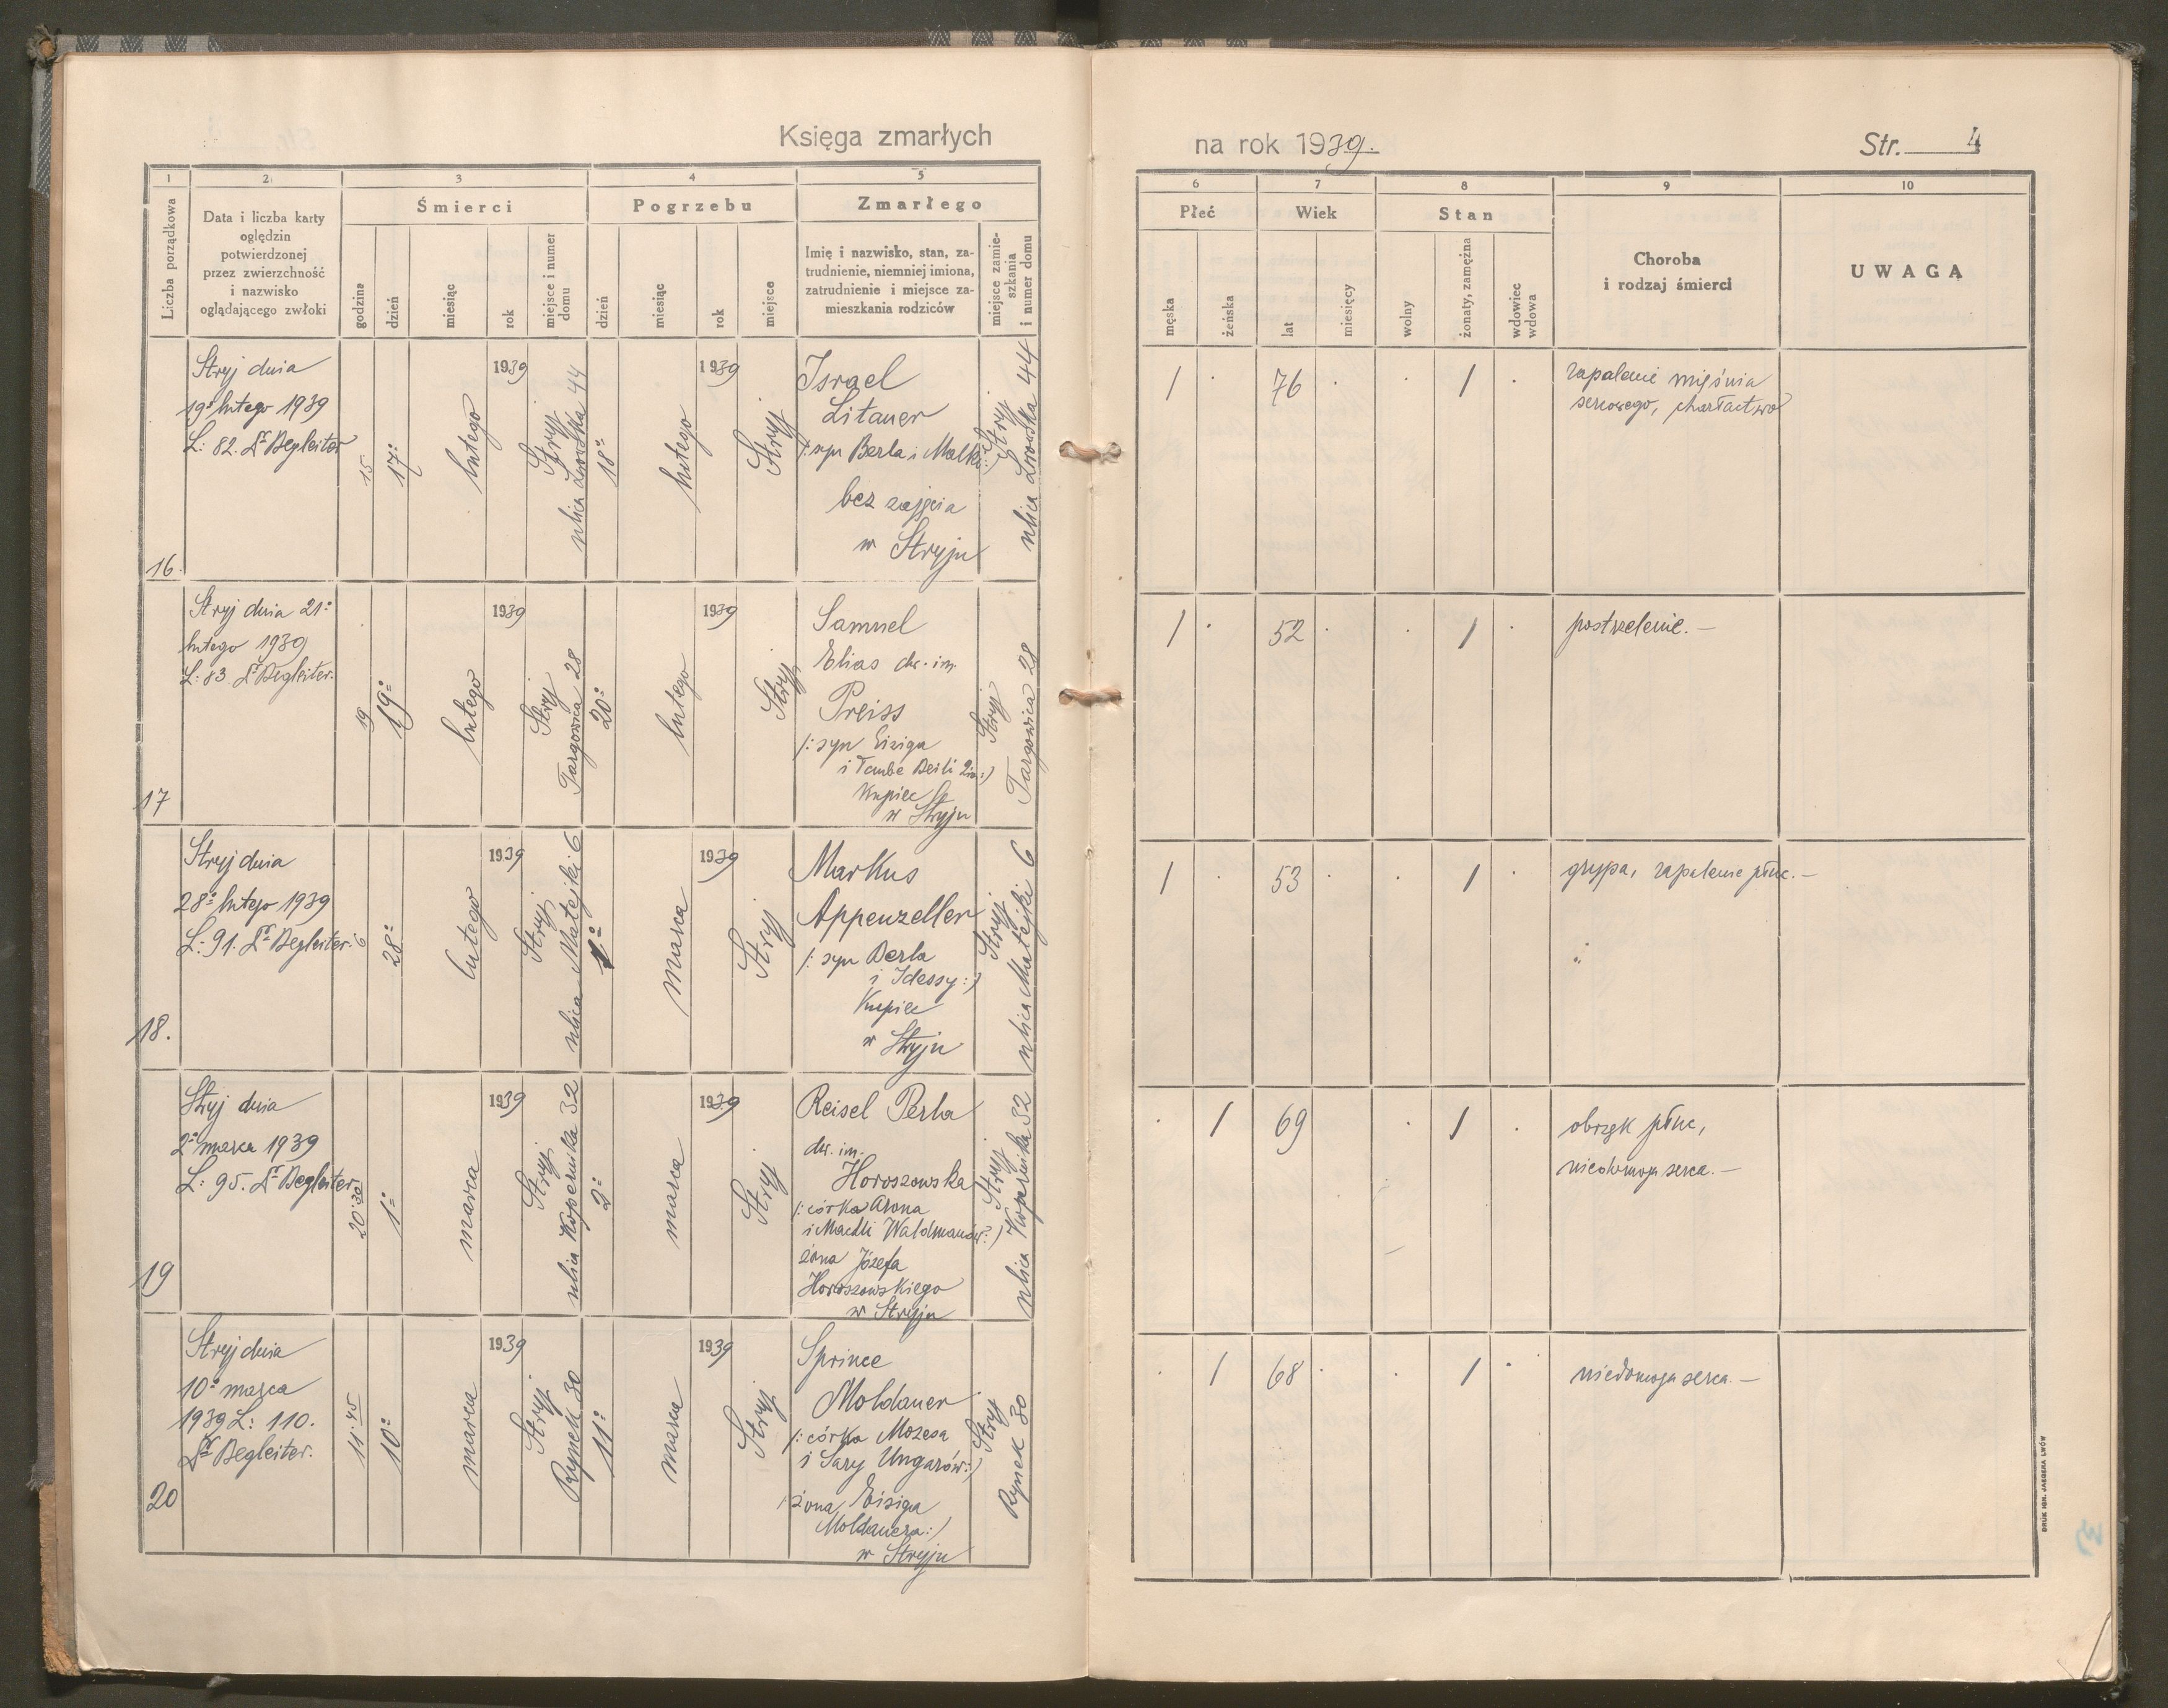 Księga zmarłych
na rok 1939.
Str. 4
1
2
3
4
5
6
7
8
9
10
Liczba porządkowa
Data i liczba karty
oględzin
potwierdzonej
przez zwierzchność
i nazwisko
oglądającego zwłoki
Śmierci
godzina
dzień
miesiąc
rok
miejsce i numer
domu
Pogrzebu
dzień
miesiąc
rok
miejsce
Zmarłego
Imię i nazwisko, stan, za-
trudnienie, niemniej imiona,
zatrudnienie i miejsce za-
mieszkania rodziców
miejsce zamie-
szkania
i numer domu
Płeć
męska
żeńska
Wiek
lat
miesięcy
Stan
wolny
żonaty, zamężna
wdowiec
wdowa
Choroba
i rodzaj śmierci
UWAGA
16.
Stryj dnia
19º lutego 1939
L: 82. Dr Begleiter
15
17º
lutego
1939
Stryj
ulica Lwowska 44
18º
lutego
1939
Stryj
Israel
Litauer
/: syn Berla i Malki :/
bez zajęcia
w Stryju
Stryj
ulica Lwowska 44
1
76
1
zapalenie mięśnia
sercowego, charłactwo
17
Stryj dnia 21º
lutego 1939
L: 83 Dr Begleiter.
19
19º
lutego
1939
Stryj
Targowica 28
20º
lutego
1939
Stryj
Samuel
Elias dw. im.
Preiss
/: syn Eisiga
i Taube Beili
Kupiec
w Stryju
Stryj
Targowica 28
1
52
1
postrzelenie. —
18.
Stryj dnia
28º lutego 1939
L: 91. Dr Begleiter.
6
28º
lutego
1939
Stryj
ulica Matejki 6
1º
marca
1939
Stryj
Markus
Appenzeller
/: syn Berla
i Idessy :/
Kupiec
w Stryju
Stryj
ulica Matejki 6
1
53
1
grypa, zapalenie płuc. —
19
Stryj dnia
2º marca 1939
L: 95. Dr Begleiter
20:30
1º
marca
1939
Stryj
ulica Kopernika 32
2º
marca
1939
Stryj
Reisel Perla
dw. im.
Horoszowska
/: córka Arona
i Machli Waldmanów :/
żona Józefa
Horoszowskiego
w Stryju
Stryj
ulica Kopernika 32
1
69
1
obrzęk płuc,
niedomoga serca. —
20
Stryj dnia
10º marca
1939 L: 110.
Dr Begleiter.
11:45
10º
marca
1939
Stryj
Rynek 30
11º
marca
1939
Stryj
Sprince
Moldauer
/: córka Mozesa
i Sary Ungarów :/
/: żona Eisiga
Moldauera :/
w Stryju
Stryj
Rynek 30
1
68
1
niedomoga serca. —
DRUK IGN. JAEGERA LWÓW